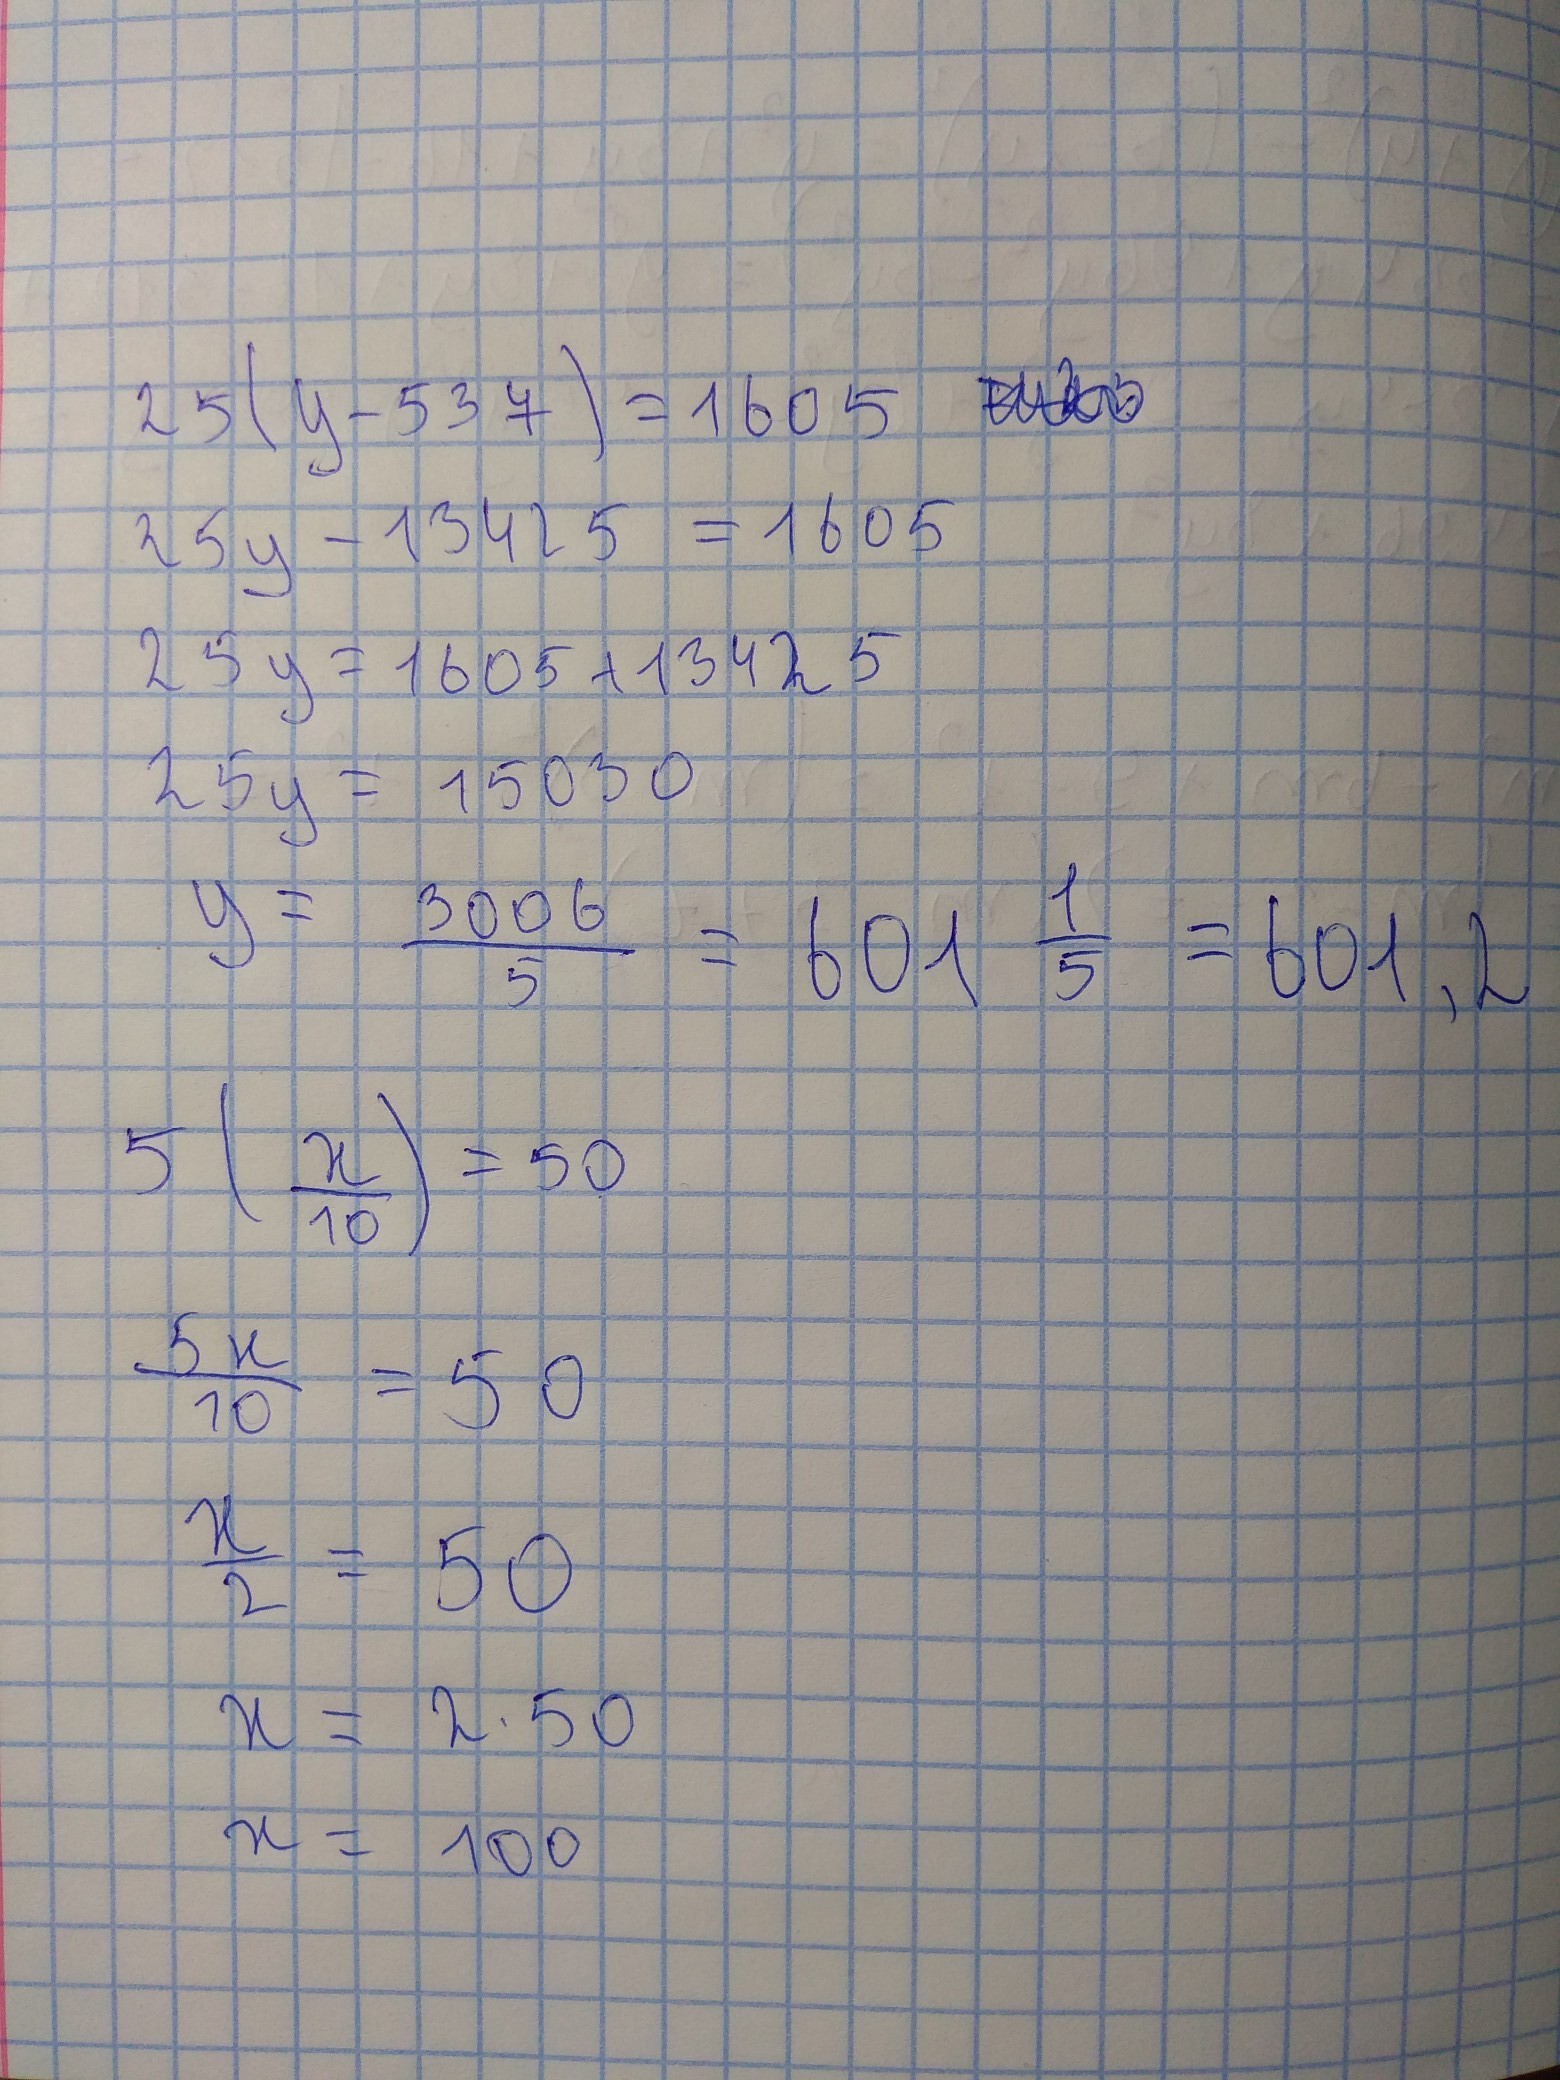 25(y-537)=1605
25y-13425=1605
25y=1605+13425
25y=15030
y=3006/5=601 1/5=601,2
5(x/10)=50
5x/10=50
x/2=50
x=2·50
x=100